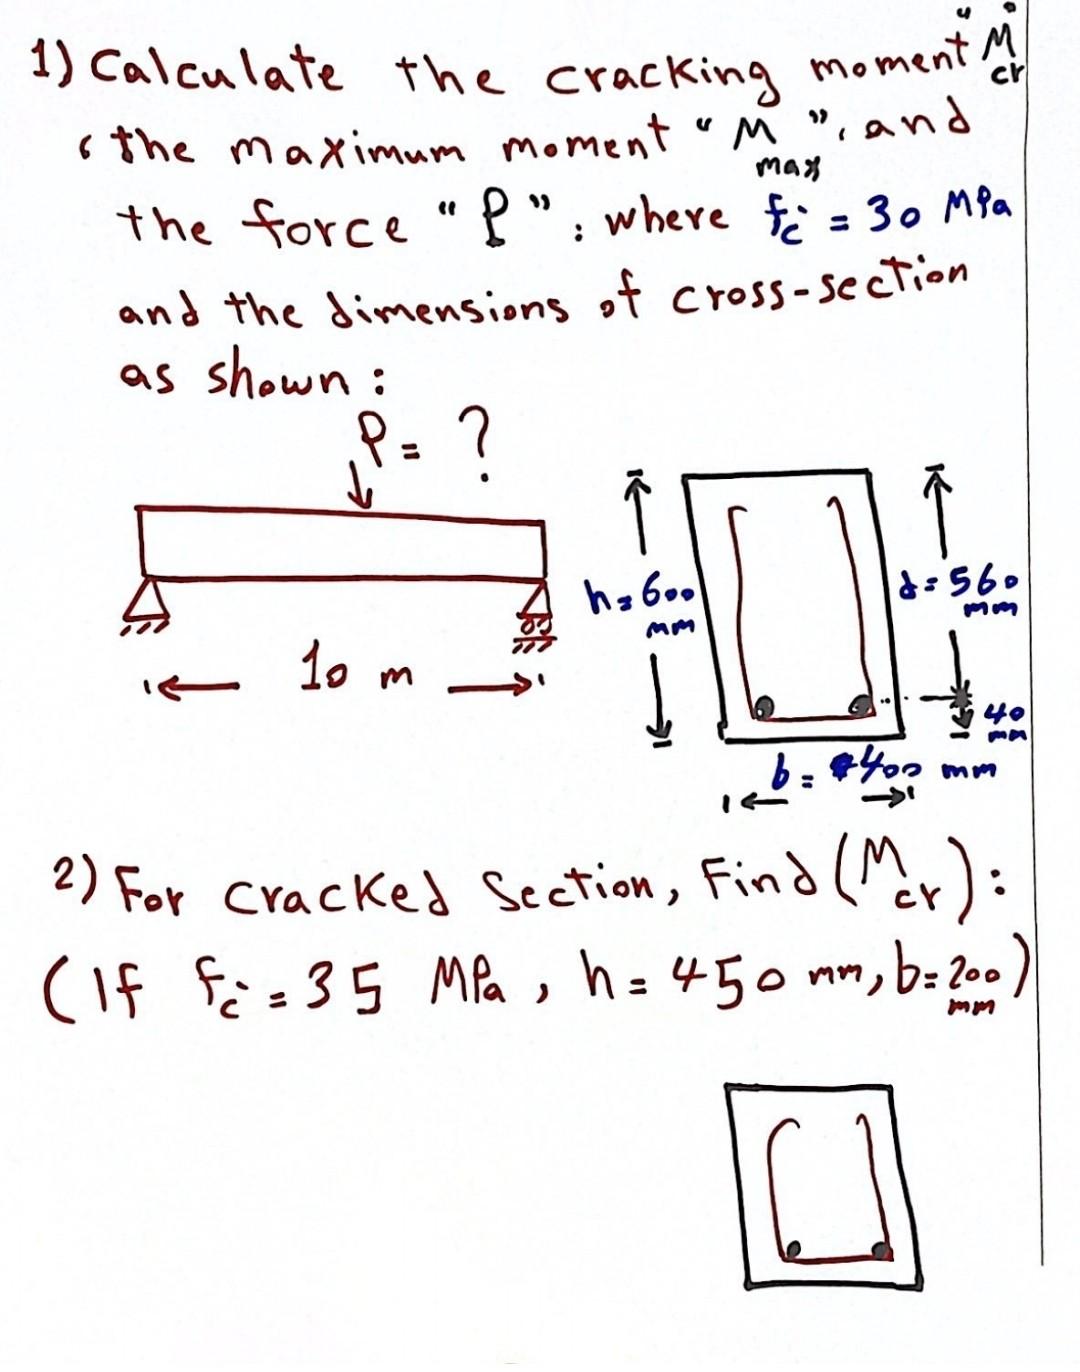 1) Calculate the cracking moment "M cr"
, the maximum moment "M max", and
the force "P": where fc' = 30 MPa
and the dimensions of cross-section
as shown:
P = ?
h = 600 mm
d = 560 mm
10 m
40 mm
b = 400 mm
2) For cracked Section, Find (Mcr):
(If fc' = 35 MPa, h = 450 mm, b = 200 mm)